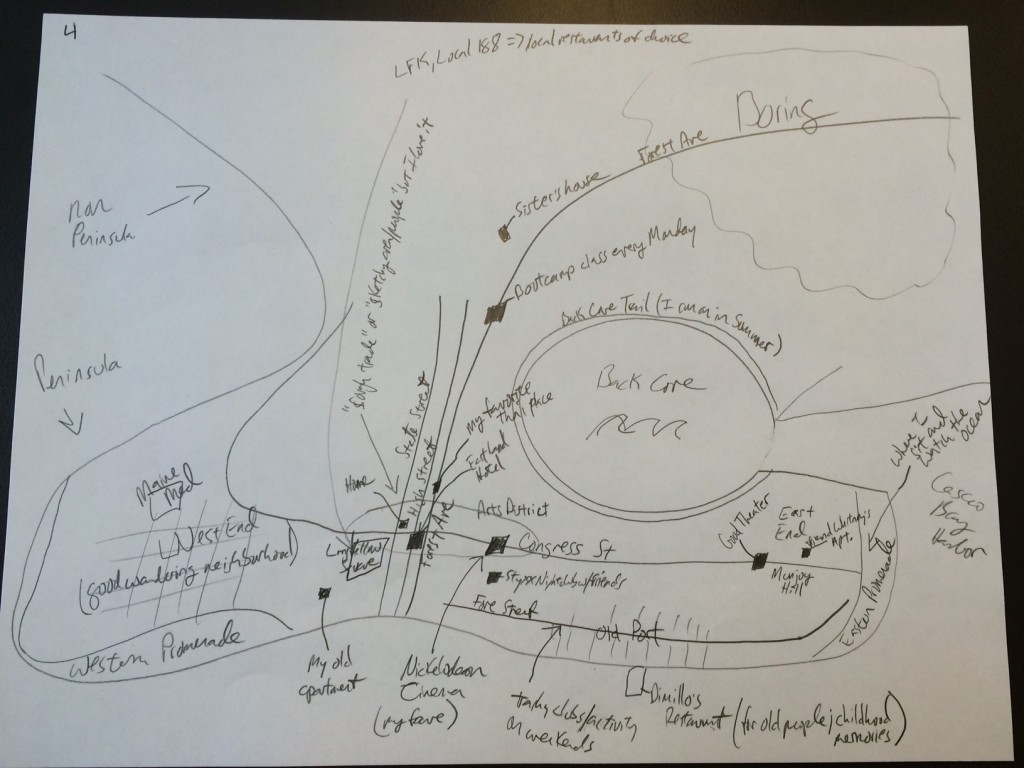 4
LFK, Local 188 => local restaurants of choice
Boring
Forest Ave
Sister's house
Non
Peninsula
"rough trade" or "sketchy area/people" but I love it
Bootcamp class every Monday
Back Cove Trail (I run in summer)
Peninsula
Back Cove
State Street
High Street
My favorite
Thai place
Eastland
Hotel
Where I
sit and
watch the
ocean
Casco
Bay
Harbor
Maine
Med
Home
Arts District
Good Theater
East
End
friend Whitney's
Apt.
West End
(good wandering neighborhood)
Longfellow
Square
Forest Ave
Congress St
Munjoy
Hill
Fore Street
Old Port
Eastern Promenade
Western Promenade
My old
apartment
Nickelodeon
Cinema
(my fave)
clubs/activity
on weekends
Dimillo's
Restaurant (for old people; childhood
memories)